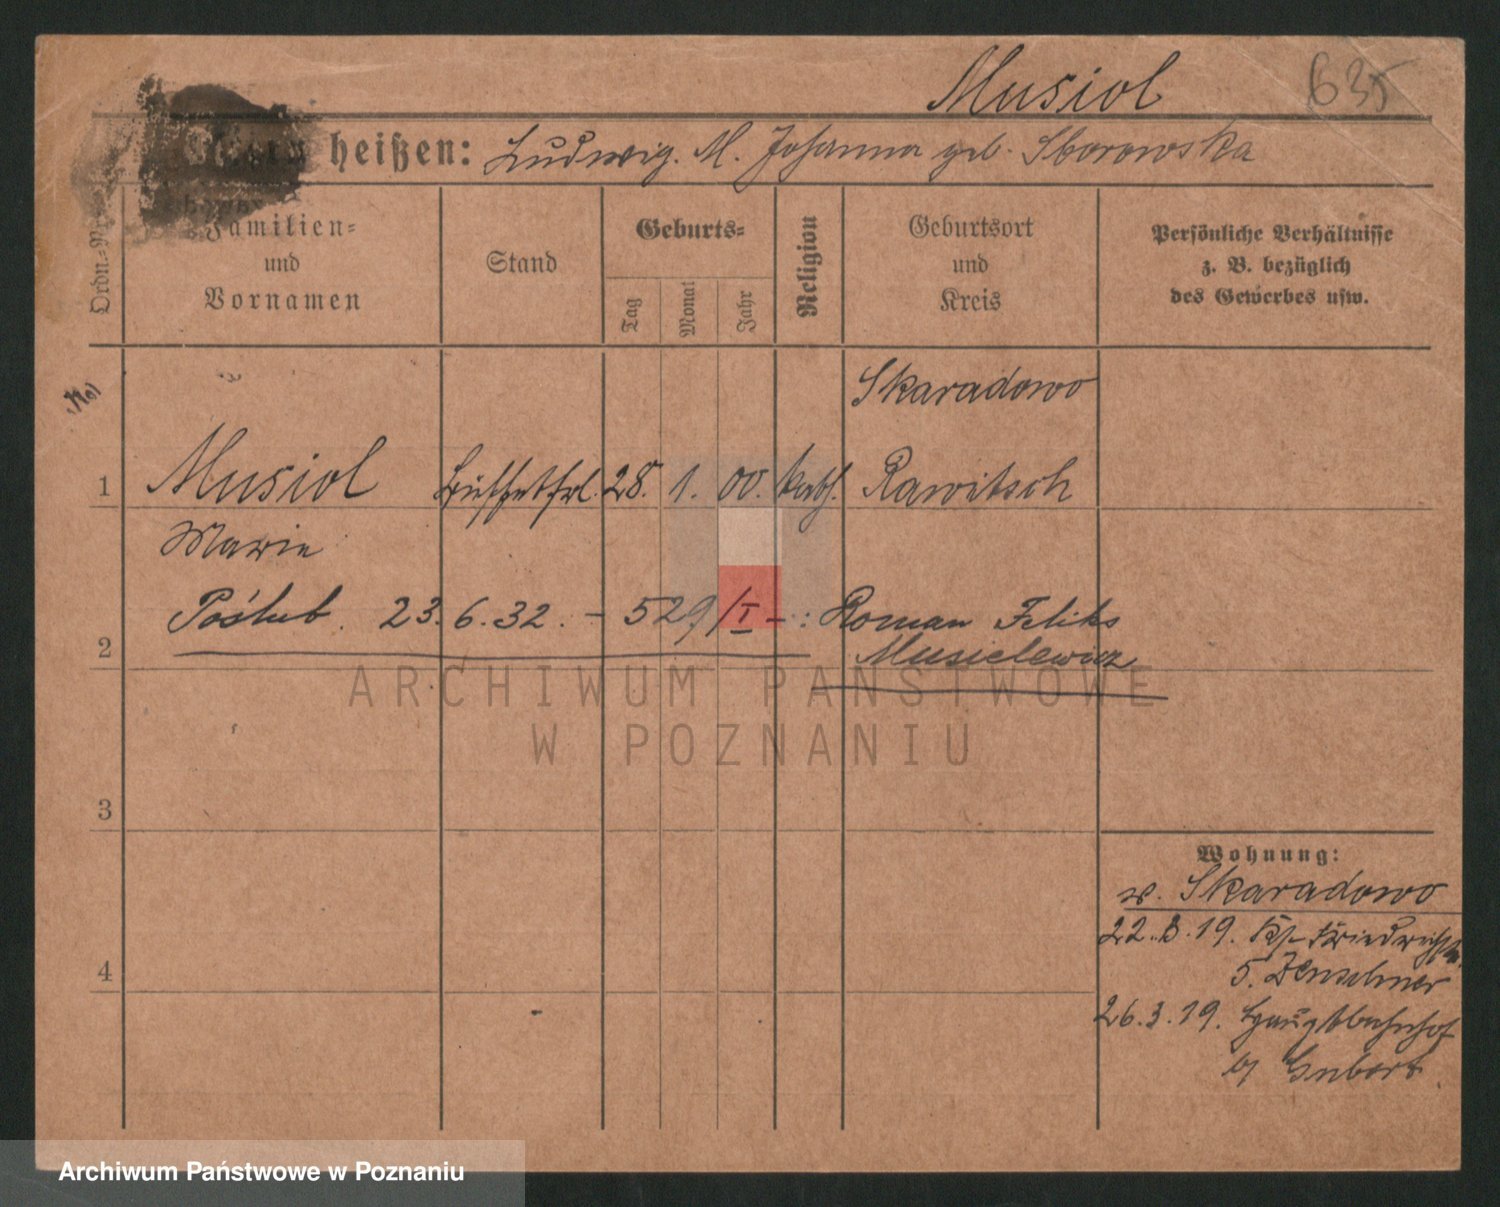 Musiol
635
heißen: Ludwig. M. Johanna geb. Sborowska
Ordn=Nr.
Familien=
und
Vornamen
Stand
Geburts=
Tag
Monat
Jahr
Religion
Geburtsort
und
Kreis
Persönliche Verhältnisse
z. B. bezüglich
des Gewerbes usw.
Skaradowo
1 Musiol Büffetfrl. 28. 1. 00. kath. Rawitsch
Marie
Poślub. 23.6.32. – 529/I – : Roman Feliks
2 Musielewicz
ARCHIWUM PAŃSTWOWE
W POZNANIU
3
Wohnung:
v. Skaradowo
22.3.19.
5.
4
26.3.19. Hauptbahnhof
b/
Archiwum Państwowe w Poznaniu